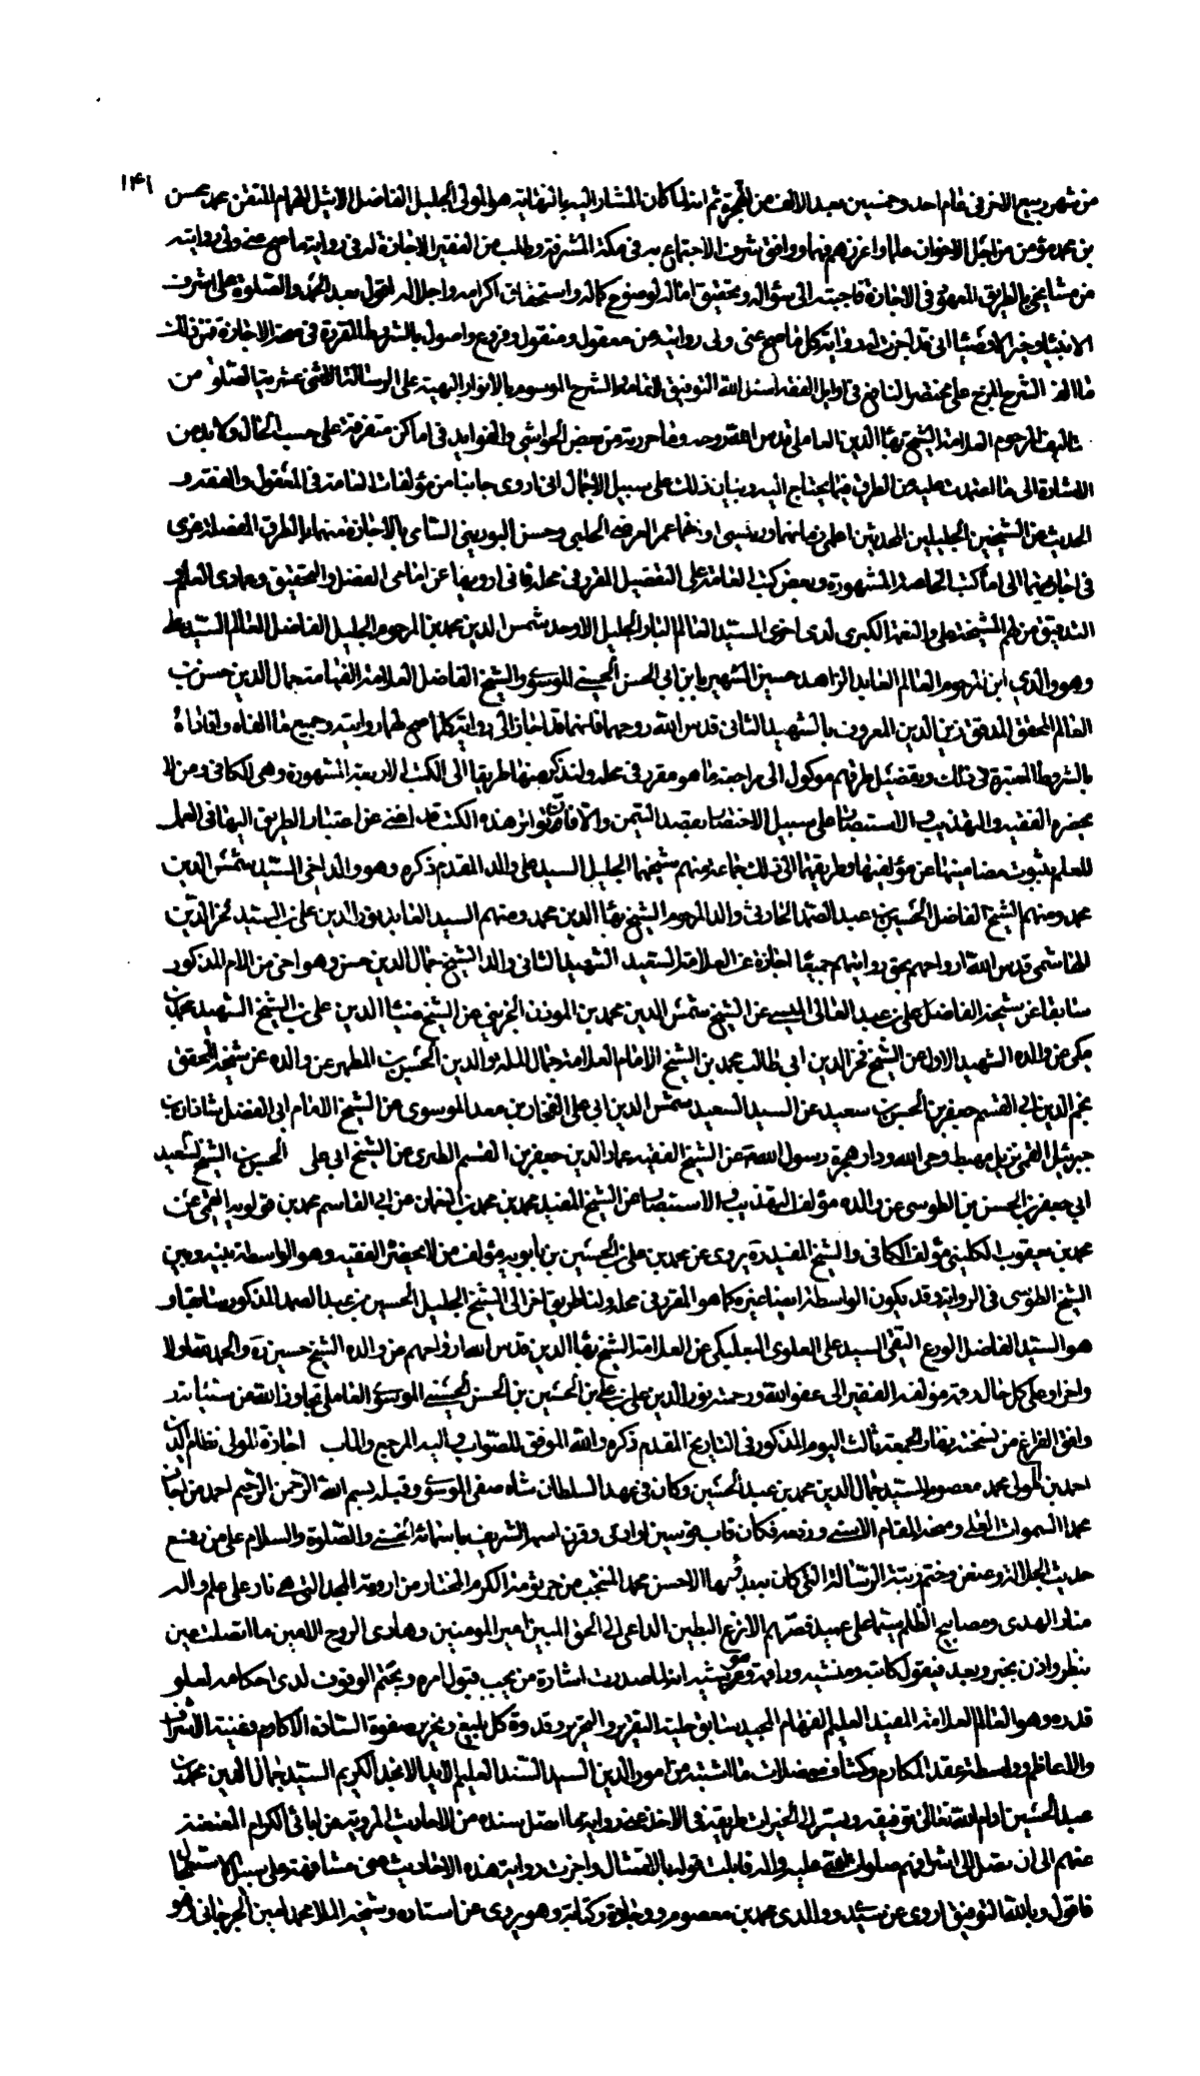 ١٤١
من شهر ربيع الاخر في عام احد وخمسين بعد الالف من الهجرة ثم انه لما كان المشار اليه بالنهاية هو المولى الجليل الفاضل الاثيل الهمام المتقن محمد محسن
بن محمد مؤمن من اجل الاخوان علما واعزهم فهما ووافق شرف الاجتماع به في مكة المشرفة وطلب من الفقير الاجازة له في رواية ما صح عني ولي روايته
من مشايخي بالطريق المعهود في الاجازة فاجبته الى سؤاله وتحقيق اماله لوضوح كماله واستحقاق اكرامه واجلاله فاقول بعد الحمد والصلوة على اشرف
الانبياء وخير الاوصياء اني قد اجزت له رواية كل ما صح عني ولي روايته من معقول ومنقول وفروع واصول بالشروط المقررة في صحة الاجازة فمن ذلك
ما الفته الشرح المزج على مختصر النافع في اوايل الفقه اسئل الله التوفيق لاتمامه والشرح الموسوم بالانوار البهية على الرسالة الاثنى عشرية الصلوتية من
تاليف المرحوم العلامة الشيخ بهاء الدين العاملي قدس الله روحه وما حررته من بعض الحواشي والفوايد في اماكن متفرقة على حسب الحال ولا بد من
الاشارة الى ما اعتمدت عليه من الطرق فيما يحتاج اليه وبيان ذلك على سبيل الاجمال اني اروى جانبا من مؤلفات العامة في المعقول والفقه و
الحديث عن الشيخين الجليلين المحدثين اعلمي زمانهما ورئيسي اوانهما عمر العرضي الحلبي وحسن البوريني الشامي بالاجازة منهما بالطرق المفصلة عنهما
في اجازتيهما الي اما كتب الخاصة المشهورة وبعض كتب العامة على التفصيل المقرر في محله فاني ارويها عن امامي الفضل والتحقيق وهادي العلم و
التدقيق من لهم المشيخة علي والنعمة الكبرى لدي اخوي السيد العالم البارع الجليل الاوحد شمس الدين محمد بن المرحوم الجليل الفاضل العالم السيد علي
وهو والدي ابن المرحوم العالم العابد الزاهد حسين الشهير بابن ابي الحسن الحسيني الموسوي والشيخ الفاضل العلامة الفهامة جمال الدين حسن بن
العالم المحقق المدقق زين الدين المعروف بالشهيد الثاني قدس الله روحهما فانهما قد اجازا لي رواية كلما صح لهما روايته وجميع ما الفاه وافاداه
بالشروط المعتبرة في ذلك وتفصيل طرقهم موكول الى مراجعة ما هو مقرر في محله ولنذكر منها طريقا الى الكتب الاربعة المشهورة وهي الكافي ومن لا
يحضره الفقيه والتهذيب والاستبصار على سبيل الاختصار بقصد التيمن والا فان تواتر هذه الكتب قد اغنى عن اعتبار الطريق اليها في العمل
للعلم بثبوت مضامينها عن مؤلفيها وطريقهما الى ذلك جماعة منهم شيخهما الجليل السيد علي والد المقدم ذكره وهو والد اخي السيد شمس الدين
محمد ومنهم الشيخ الفاضل الحسين بن عبد الصمد الحارثي والد المرحوم الشيخ بهاء الدين محمد ومنهم السيد العابد نور الدين علي بن السيد فخر الدين
الهاشمي قدس الله ارواحهم بحق روايتهم جميعا اجازة عن العلامة السعيد الشهيد الثاني والد الشيخ جمال الدين حسن وهو اخي من الام المذكور
سابقا عن شيخه الفاضل علي بن عبد العالي الميسي عن الشيخ شمس الدين محمد بن الموذن الجزيني عن الشيخ ضياء الدين علي بن الشيخ الشهيد محمد بن
مكي عن والده الشهيد الاول عن الشيخ فخر الدين ابي طالب محمد بن الشيخ الامام العلامة جمال الملة والدين الحسن بن المطهر عن والده عن شيخه المحقق
نجم الدين ابي القسم جعفر بن الحسن بن سعيد عن السيد السعيد شمس الدين ابي علي الفخار بن معد الموسوي عن الشيخ الامام ابي الفضل شاذان بن
جبرئيل القمي نزيل مهبط وحي الله ودار هجرة رسول الله ص عن الشيخ الفقيه عماد الدين جعفر بن القسم الطبري عن الشيخ ابي علي الحسن بن الشيخ السعيد
ابي جعفر بن الحسن بن الطوسي عن والده مؤلف التهذيب والاستبصار عن الشيخ المفيد محمد بن محمد بن النعمان عن ابي القاسم محمد بن قولويه القمي عن
محمد بن يعقوب الكليني مؤلف الكافي والشيخ المفيد ره يروي عن محمد بن علي بن الحسين بن بابويه مؤلف من لا يحضره الفقيه وهو الواسطة بينه وبين
الشيخ الطوسي في الرواية وقد يكون الواسطة ايضا غيره كما هو المقرر في محله ولنا طريق اخر الى الشيخ الجليل الحسين بن عبد الصمد المذكور سابقا و
هو السيد الفاضل الورع التقي السيد علي العلوي البعلبكي عن العلامة الشيخ بهاء الدين قدس الله ارواحهم عن والده الشيخ حسين ره والحمد لله اولا
واخرا وعلى كل حال رقمه مؤلفه الفقير الى عفو الله ورحمته نور الدين علي بن علي بن الحسين بن الحسن الحسيني الموسوي العاملي تجاوز الله عن سيئاته
وافق الفراغ من نسخته نهار الجمعة ثالث اليوم المذكور في التاريخ المقدم ذكره والله الموفق للصواب واليه المرجع والماب اجازة المولى نظام الدين
احمد بن المولى محمد معصوم للسيد جمال الدين محمد بن عبد الحسين وكان في عهد السلطان شاه صفي الموسوي وقبله بسم الله الرحمن الرحيم احمد من اجاز
محمدا السموات العلى ومنحه المقام الاسنى ورفعه فكان قاب قوسين او ادنى وقرن اسمه الشريف باسمائه الحسنى والصلوة والسلام على من رفع
حديث الجلالة وعنعن وختم رتبة الرسالة التي كان بدؤها الاحسن محمد المنتخب من جرثومة الكرم المختار من ارومة المجد التي هي نار على علم واله
منار الهدى ومصابيح الظلم سيما على عميد قصرهم الانزع البطين الداعي الى الحق المبين امير المومنين وهادي الروح الامين ما اتصلت عين
بنظر واذن بخبر وبعد فيقول كاتبه ومنشيه وراقمه وموشيه انه لما صدرت اشارة من يجب قبول امره ويتحتم الوقوف لدى احكامه لعلو
قدره وهو العالم العلامة المفيد العليم الفهام المجيد سابق حلبة التقرير والتحرير وقدوة كل بليغ ونحرير صفوة السادة الاكارم وغنية الاشراف
والاعاظم وواسطة عقد المكارم وكشاف معضلات ما اشتبه من امور الدين السيد السند العليم الايد الامجد الكريم السيد جمال الدين محمد بن
عبد الحسين ادام الله تعالى توفيقه ويسر الى الخيرات طريقه في الاخذ عني رواية ما اتصل سنده من الاحاديث المروية عن ابائي الكرام المعنعنة
عنهم الى ان تصل الى اشرافهم صلوات الله عليه واله قابلت قوله بالامتثال واجزت رواية هذه الاحاديث عني مشافهة على سبيل الاستعجال
فاقول وبالله التوفيق اروي عن سيدي ووالدي محمد بن معصوم وجادة وكتابة وهو يروي عن استاده وشيخه الملا محمد امين الجرجاني وهو